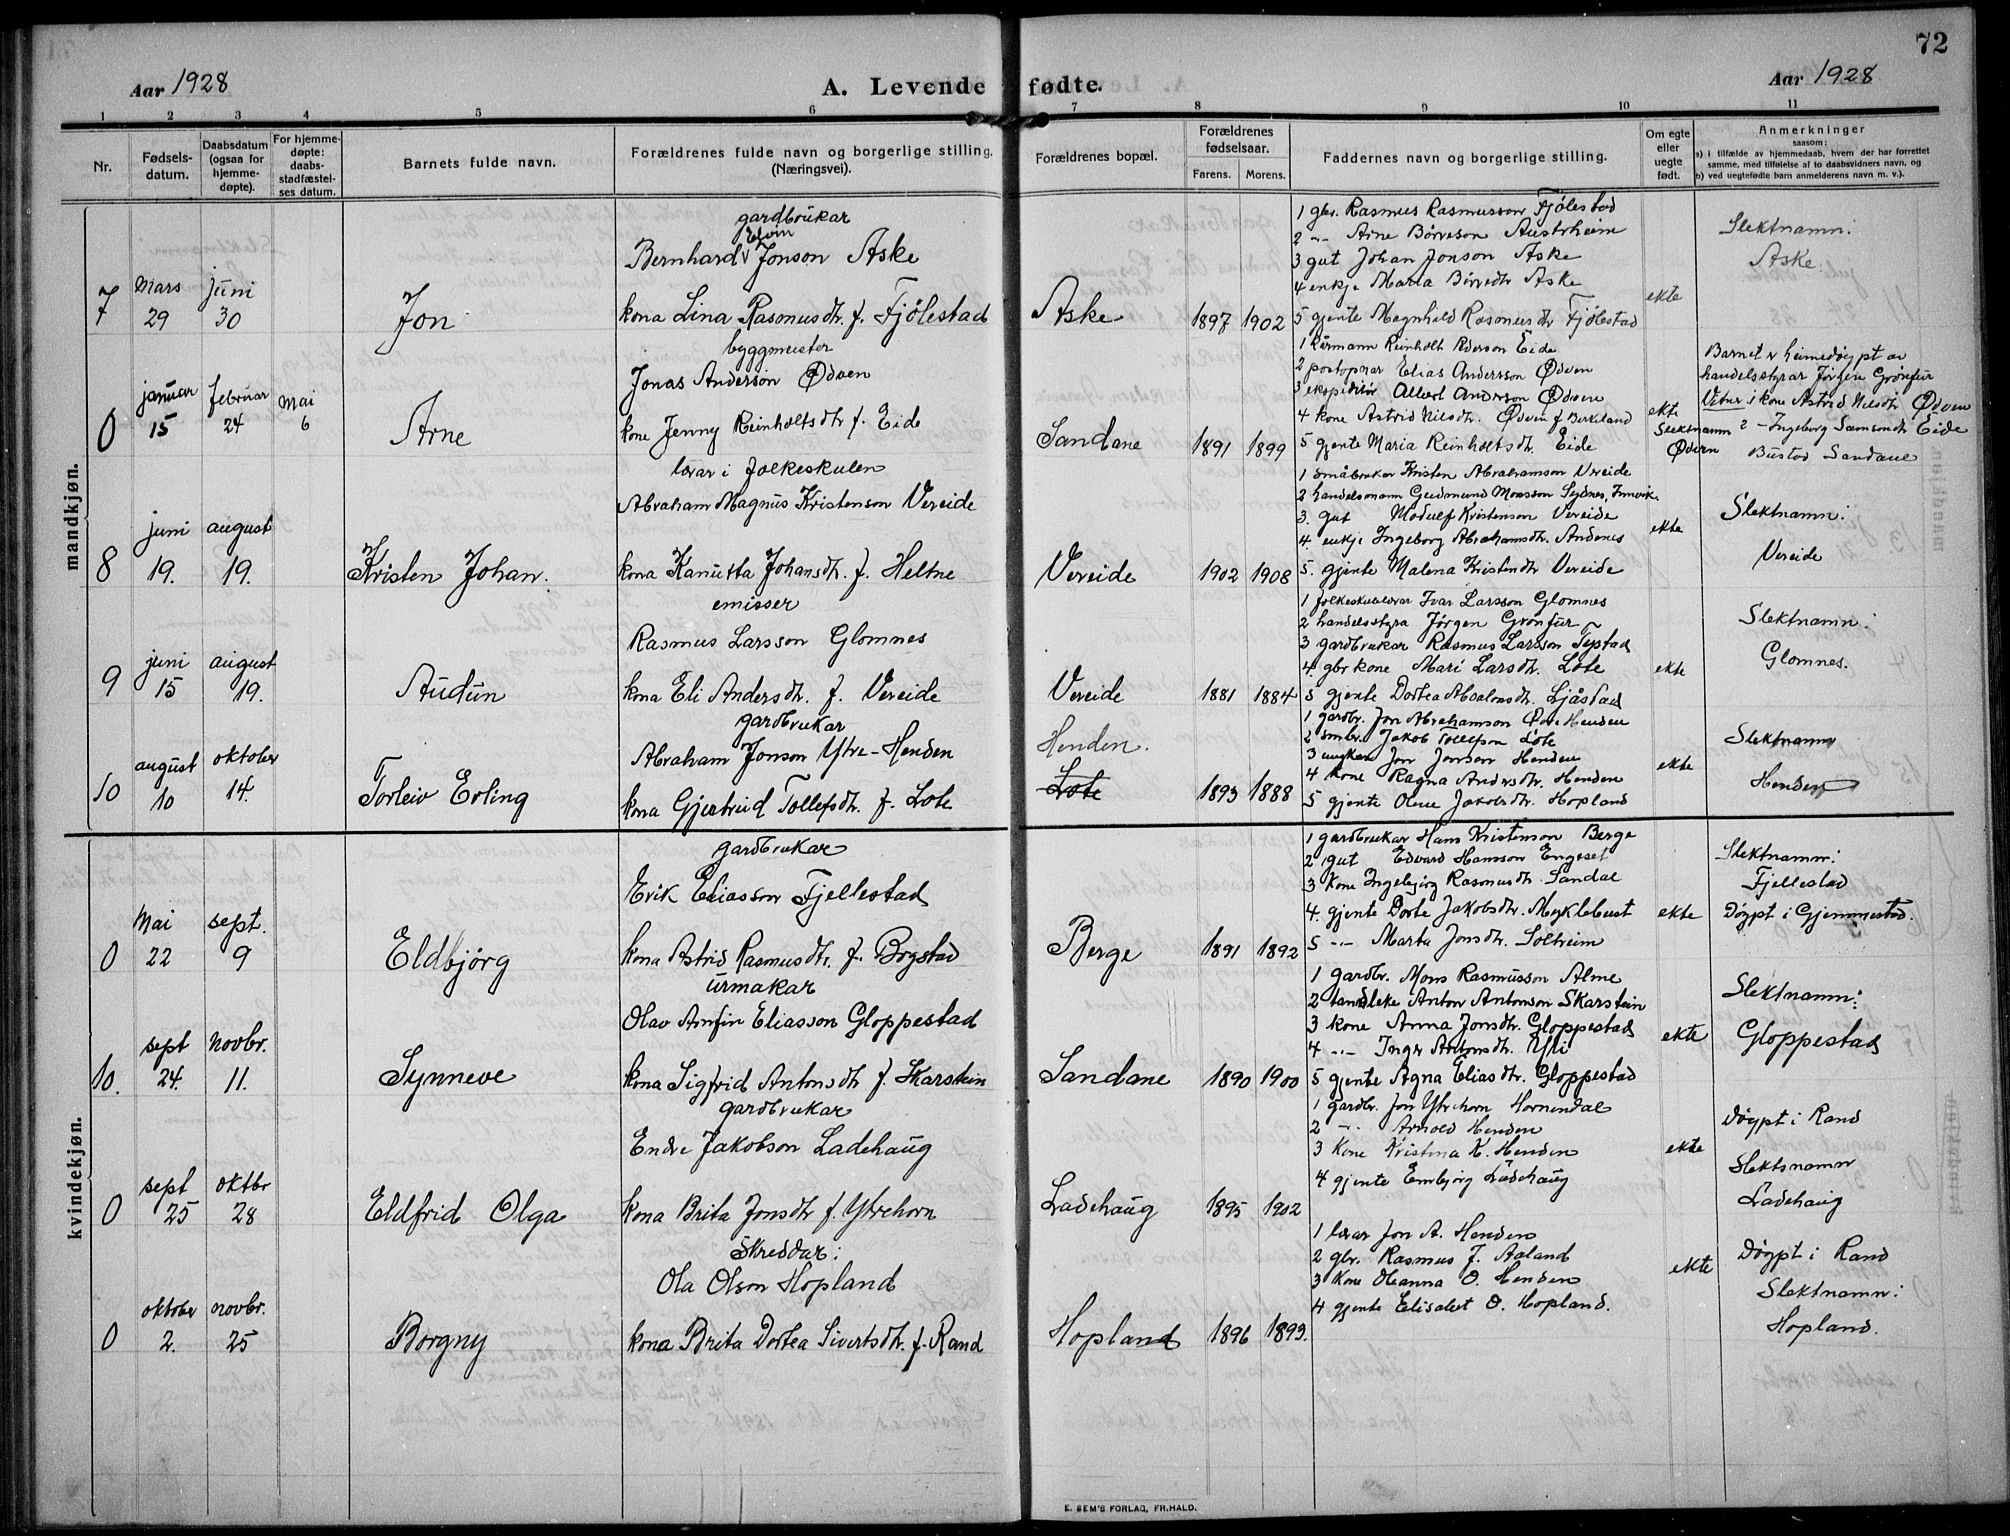 72
Aar 1928
A. Levende fødte.
Aar 1928
1 2 3 4 5 6 7 8 9 10 11
Nr.
Fødsels-
datum.
Daabsdatum
(ogsaa for
hjemme-
døpte).
For hjemme-
døpte:
daabs-
stadfæstel-
ses datum.
Barnets fulde navn.
Forældrenes fulde navn og borgerlige stilling.
(Næringsvei).
Forældrenes bopæl.
Forældrenes
fødselsaar.
Farens. Morens.
Faddernes navn og borgerlige stilling.
Om egte
eller
uegte
født.
Anmerkninger
saasom:
a) i tilfælde av hjemmedaab, hvem der har forrettet
samme, med tilføielse af to daabsvidners navn, og
b) ved uegtefødte barn anmelderens navn m. v.).
mandkjøn.
7
Mars
29
juni
30
Jon
gardbrukar
Elvin
Bernhard v Jonson Aske
kona Lina Rasmusdtr. f. Fjølestad
Aske
1897 1902
1 gbr. Rasmus Rasmusson Fjølestad
2 -"- Arne Børreson Austrheim
3 gut Johan Jonson Aske
4 enkje Marta Børredtr Aske
5 gjente Magnhild Rasmusdtr Fjølestad
ekte
Slektnamn:
Aske.
0
januar
15
februar
24
Mai
6
Arne
byggmeister
Jonas Anderson Ødven
kone Jenny Reinholtsdtr f. Eide
Sandane
1891 1899
1 kårmann Reinholt Pederson Eide
2 postopnar Elias Andersson Ødven
3 ekspeditør Albert Anderson Ødven
4 kone Astrid Nilsdtr. Ødven f Birkeland
5 gjente Maria Reinholtsdtr. Eide
ekte
Slektnamn
Ødven
Barnet er heimedøypt av
handelsstyrar Jørgen Grønfur
Vitner: 1 kone Astrid Nilsdtr Ødven
2 - Ingeborg Samsondtr Eide
Bustad Sandane
8
juni
19.
august
19.
Kristen Johan.
lærar i folkeskulen
Abraham Magnus Kristenson Vereide
kona Kanutta Johansdtr. f. Heltne
Vereide
1902 1908
1 småbrukar Kristen Abrahamson Vereide
2 handelsmann Gudmund Monsson Sydnes, Innvik.
3. gut Modulf Kristenson Vereide
4. enkje Ingeborg Abrahamsdtr. Andenes
5. gjente Malena Kristendtr Vereide
ekte
Slektnamn:
Vereide
9
juni
15
august
19.
Audun
emissær
Rasmus Larsson Glomnes
kona Eli Andersdtr. f. Vereide
Vereide
1881 1884
1 folkeskulelærar Ivar Larsson Glomnes
2 handelsstyra Jørgen Grønfur
3 gardbrukar Rasmus Larsson Tystad
4. gbr kone Mari Larsdtr. Lote
5 gjente Dortea Absalonsdtr. Ljåstad
ekte
Slektnamn:
Glomnes.
10
august
10
oktober
14.
Torleiv Erling
gardbrukar
Abraham Jonson Ytre-Henden
kona Gjertrud Tollefsdtr. f. Lote
Henden.
Lote
1893 1888
1 gardbr. Jon Abrahamson Øvre Henden
2 smbr. Jakob Tollefson Lote
3 ungkar Jon Jonson Henden
4 kone Ragna Andersdtr. Henden
5 gjente Oline Jakobsdtr. Hopland
ekte
Slektnamn
Henden
kvindekjøn.
0
Mai
22
sept.
9
Eldbjørg
gardbrukar
Erik Eliasson Fjellestad
kona Astrid Rasmusdtr. f. Bogstad
Berge
1891 1892
1 gardbrukar Hans Kristenson Berge
2 gut Edvard Hansson Engeset
3 kone Ingebjørg Rasmusdtr. Sandal
4. gjente Dorte Jakobsdtr. Myklebust
5 -"- Marta Jonsdtr. Solheim
ekte
Slektnamn:
Fjellestad
Døypt i Gjemmestad.
10.
sept
24.
Novbr.
11.
Synneve
urmakar
Olav Arnfin Eliasson Gloppestad
kona Sigfrid Antonsdtr f. Skarstein
Sandane
1890 1900
1 gardbr. Mons Rasmusson Alme
2 tandlæke Anton Antonson Skarstein
3 kone Anna Jonsdtr. Gloppestad
4 -"- Inger Antonsdtr. Yli
5 gjente Agna Eliasdtr. Gloppestad
ekte
Slektnamn:
Gloppestad
0
sept
25
oktbr
28
Eldfrid Olga
gardbrukar
Endre Jakobson Ladehaug
kona Brita Jonsdtr f. Ytrehorn
Ladehaug
1895 1902
1 gardbr. Jon Ytrehorn Hornindal
2 -"- Arnold Henden
3 kone Kristina K. Henden
4 gjente Embjørg Ladehaug
ekte
Døypt i Rand
Slektsnamn
Ladehaug
0
oktober
2.
novbr.
25
Borgny
Skreddar:
Ola Olson Hopland
kona Brita Dortea Sivertsdtr. f. Rand
Hopland
1896 1893.
1 lærar Jon A. Henden
2 gbr. Rasmus J. Aaland
3 kone Oleanna O. Henden
4 gjente Elisabet O. Hopland.
ekte
Døypt i Rand
Slektnamn:
Hopland.
E. SEM'S FORLAG, FR.HALD.